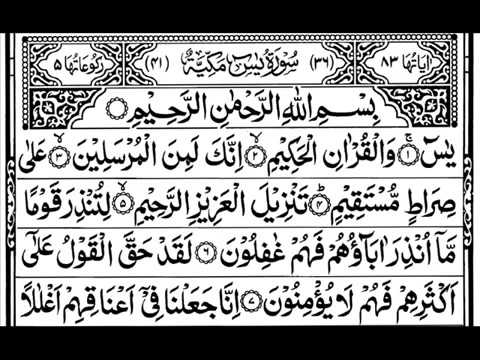 اٰيَاتُهَا ٨٣ (٣٦) سُوْرَةُ يٰسٓ مَكِّيَّةٌ (٤١) رُكُوْعَاتُهَا ٥
بِسْمِ اللّٰهِ الرَّحْمٰنِ الرَّحِيْمِ
يٰسٓ ۚ﴿١﴾ وَالْقُرْاٰنِ الْحَكِيْمِ ۙ﴿٢﴾ اِنَّكَ لَمِنَ الْمُرْسَلِيْنَ ۙ﴿٣﴾ عَلٰى
صِرَاطٍ مُّسْتَقِيْمٍ ؕ﴿٤﴾ تَنْزِيْلَ الْعَزِيْزِ الرَّحِيْمِ ۙ﴿٥﴾ لِتُنْذِرَ قَوْمًا
مَّاۤ اُنْذِرَ اٰبَآؤُهُمْ فَهُمْ غٰفِلُوْنَ ﴿٦﴾ لَقَدْ حَقَّ الْقَوْلُ عَلٰۤى
اَكْثَرِهِمْ فَهُمْ لَا يُؤْمِنُوْنَ ﴿٧﴾ اِنَّا جَعَلْنَا فِيْۤ اَعْنَاقِهِمْ اَغْلٰلًا